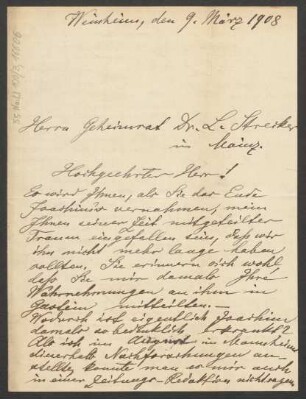 Weinheim, den 9. März 1908
Herrn Geheimrat Dr. L. Strecker
in Mainz.
Hochgeehrter Herr!
Es wird Ihnen, als Sie das Ende
Joachims vernahmen, mein
Ihnen seiner Zeit mitgeteilter
Traum eingefallen sein, daß wir
ihn nicht mehr lange haben
sollten. Sie erinnern sich wohl
daß Sie mir damals Ihre
Wahrnehmungen an ihm in
Gastein mitteilten.—
Wodurch ist eigentlich Joachim
damals so bedenklich erkrankt?
Als ich im August in Mannheim
dieserhalb Nachforschungen an-
stellte, konnte man es mir auch
in einer Zeitungs-Redaktion nicht sagen